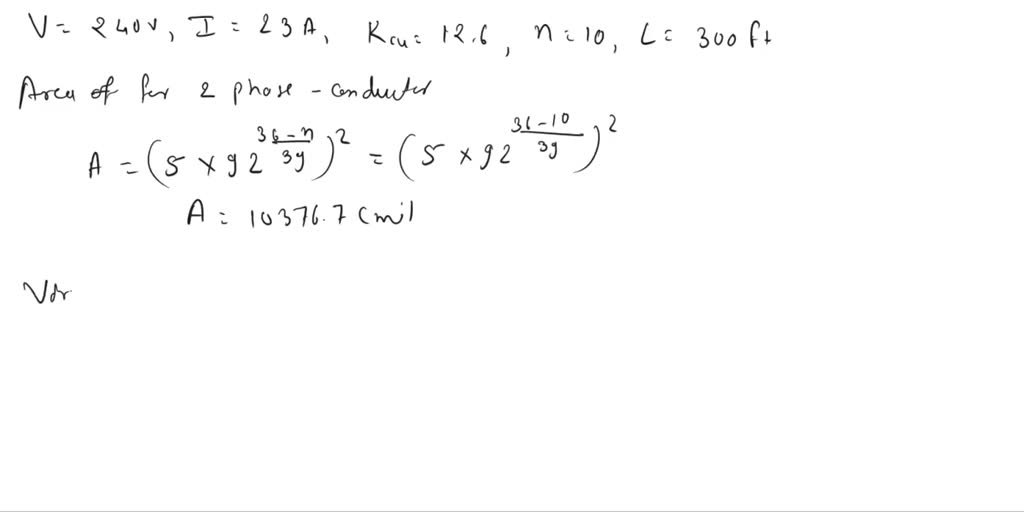 V = 240V, I = 23 A, Kcu = 12.6, n = 10, L = 300 ft
Area of for 2 phase - conductor
A = (5 × 92^(36-n)/39)^2 = (5 × 92^(36-10)/39)^2
A = 10376.7 Cmil
Vdr